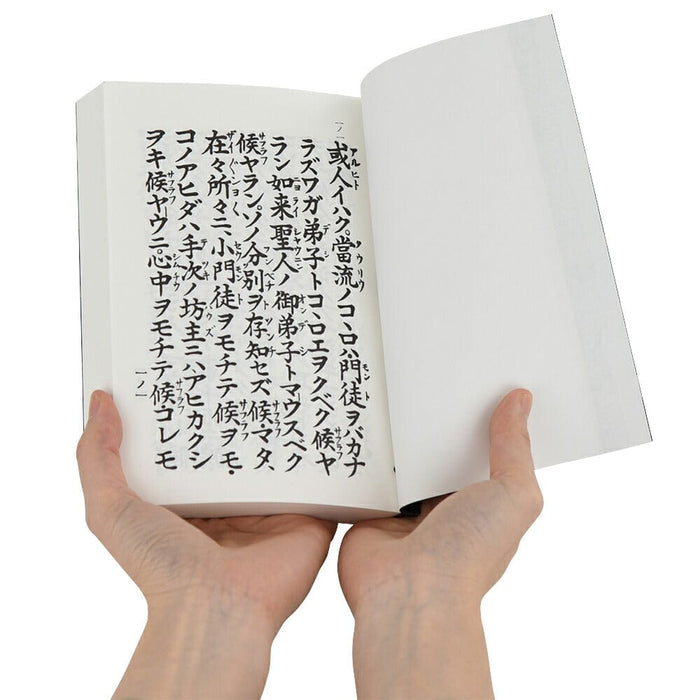 或人イハク。當流ノコヽロハ、門徒ヲバカナ
ラズワガ弟子トコヽロエヲクベク候ヤ
ラン如来聖人ノ御弟子トマウスベク
候ヤラン。ソノ分別ヲ存知セズ候・マタ、
在々所々ニ、小門徒ヲモチテ候ヲモ・
コノアヒダハ手次ノ坊主ニハアヒカクシ
ヲキ候ヤウニ。心中ヲモチテ候コレモ
一ノ一